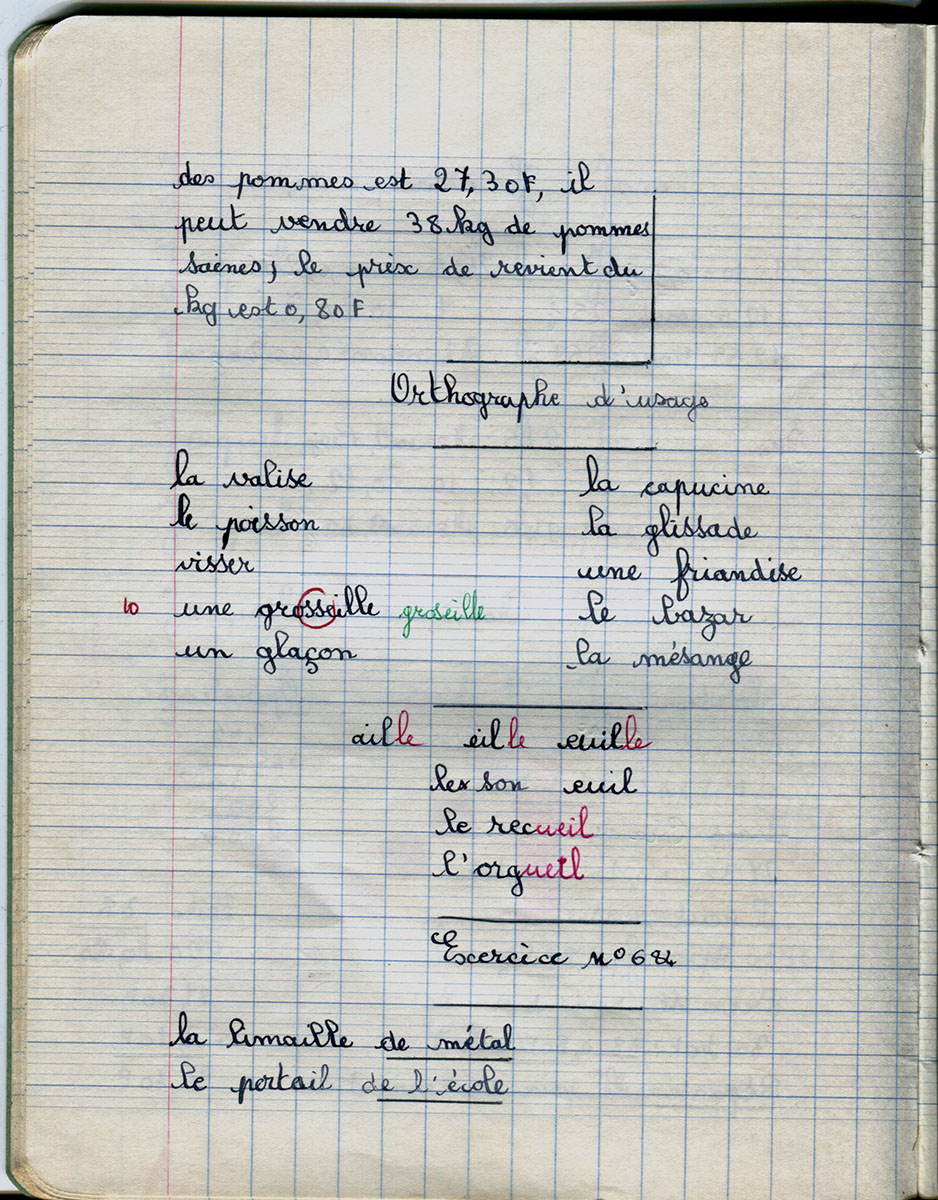 des pommes est 27,30F, il
peut vendre 38kg de pommes
saènes, le prèx de revient du
kg est 0,80F.
Orthographe d'usage
la valise
le poisson
visser
10 une grosseille groseille
un glaçon
la capucine
la glissade
une friandise
le bazar
la mésange
aille eille euille
les son euil
le recueil
l'orgueil
Exercice N°684
la limaille de métal
le portail de l'école